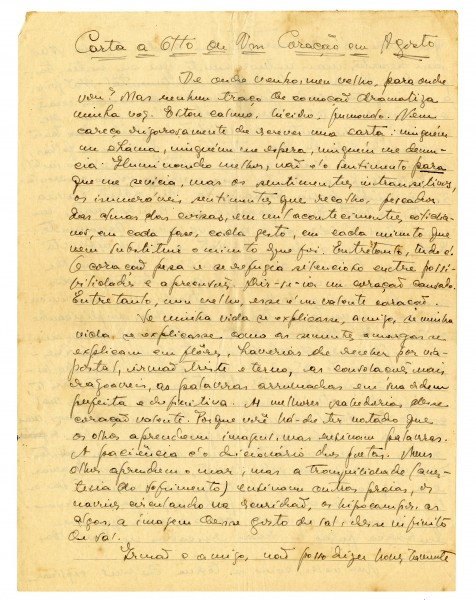 Carta a Otto ou Um Coração em Agosto
De onde venho, meu velho, para onde
vou? Mas nenhum traço de comoção dramatiza
minha voz. Estou calmo. Lúcido, fumando. Nem
careço rigorosamente de escrever uma carta: ninguém
me chama, ninguém me espera, ninguém me denun-
cia. Iluminando melhor, não é o sentimento para
que me sevicia, mas os sentimentos intransitivos,
os inumeráveis sentimentes que recolho, pescador
das almas das coisas, em mil acontecimentos cotidia-
nos, em cada face, cada gesto, em cada minuto que
vem substituir o minuto que foi. Entretanto, tudo é.
O coração pesa e se refugia silencioso entre possi-
bilidades e apreensões. Dir-se-ia um coração cansado.
Entretanto, meu velho, esse é um valente coração.
Se minha vida se explicasse, amigo, se minha
vida se explicasse como as sementes amargas se
explicam em flores, haverias de receber por via-
postal, irmão triste e terno, as consolações mais
razoáveis, as palavras arrumadas em sua ordem
perfeita e definitiva. As melhores desse
coração valente. Porque você há-de ter notado que
os olhos aprendem imagens mas ensinam palavras.
A paciência é o dicionário dos poetas. Meus
olhos aprendem o mar, mas a tranquilidade
do sofrimento) ensinam outras praias, os
navios na servidão, os hipocampos, as
algas, a imagem desse gosto de sal, desse infinito
de sal.
Irmão e amigo, não posso dizer honestamente